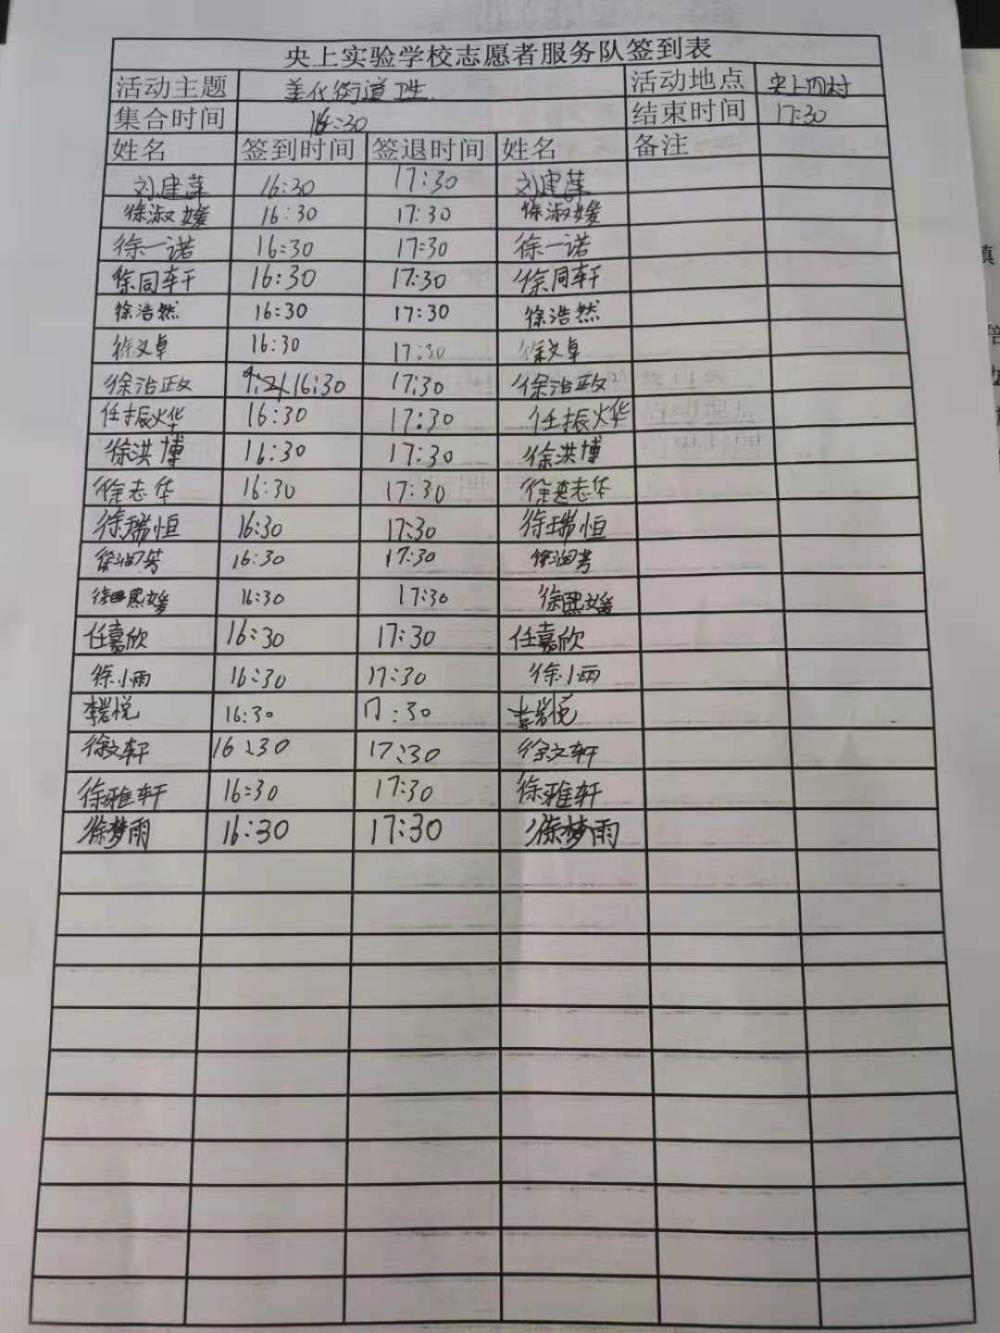 央上实验学校志愿者服务队签到表
活动主题 美化街道卫生 活动地点 央上四村
集合时间 16:30 结束时间 17:30
姓名 签到时间 签退时间 姓名 备注
刘建莲 16:30 17:30 刘建莲
徐淑媛 16:30 17:30 徐淑媛
徐一诺 16:30 17:30 徐一诺
徐同轩 16:30 17:30 徐同轩
徐浩然 16:30 17:30 徐浩然
徐义卓 16:30 17:30 徐义卓
徐治政 16:30 17:30 徐治政
任振烨 16:30 17:30 任振烨
徐洪博 16:30 17:30 徐洪博
徐志华 16:30 17:30 徐志华
徐瑞恒 16:30 17:30 徐瑞恒
16:30 17:30
徐熙媛 16:30 17:30 徐熙媛
任嘉欣 16:30 17:30 任嘉欣
徐小雨 16:30 17:30 徐小雨
16:30 17:30
徐文轩 16:30 17:30 徐文轩
徐雅轩 16:30 17:30 徐雅轩
徐梦雨 16:30 17:30 徐梦雨